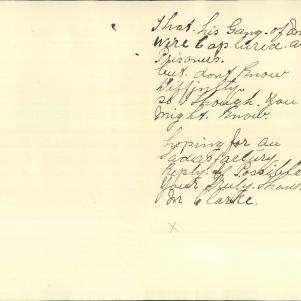 That his Gang of
were Captured as
Prisoners.
but dont Know
Diffinitly
so though You
Might Know
hoping for an
Sadisfactury
Reply if Possible
Your truly
Mr Clarke.
X